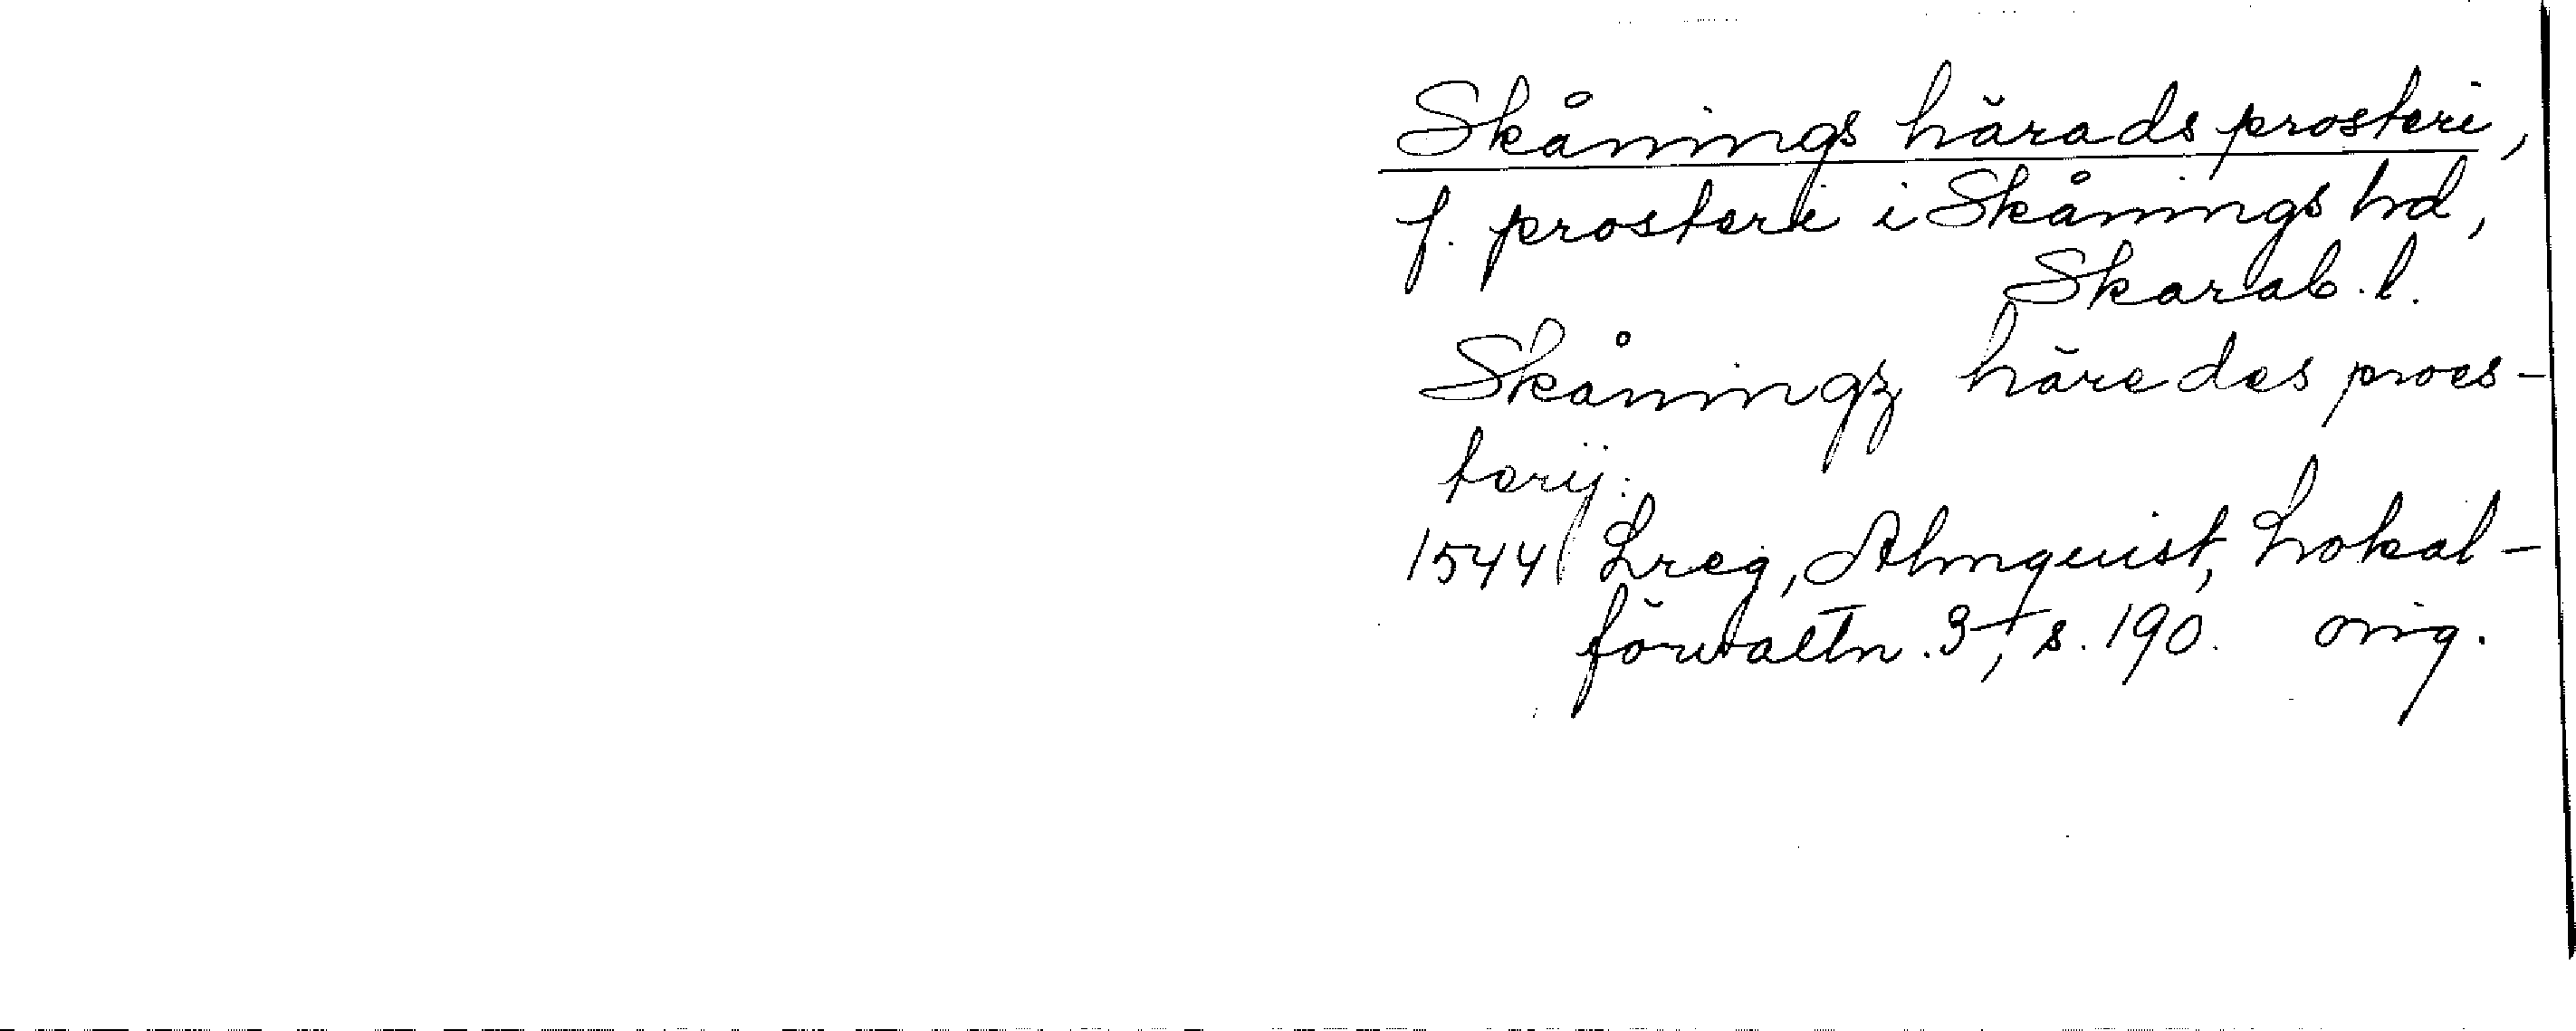 Skånings härads prosteri,
f. prosteri i Skånings hd,
Skarab. l.
Skåningz häredes proes-
terij.
1544 Lreg, Almquist, Lokal-
förvaltn. 3, s. 190. orig.